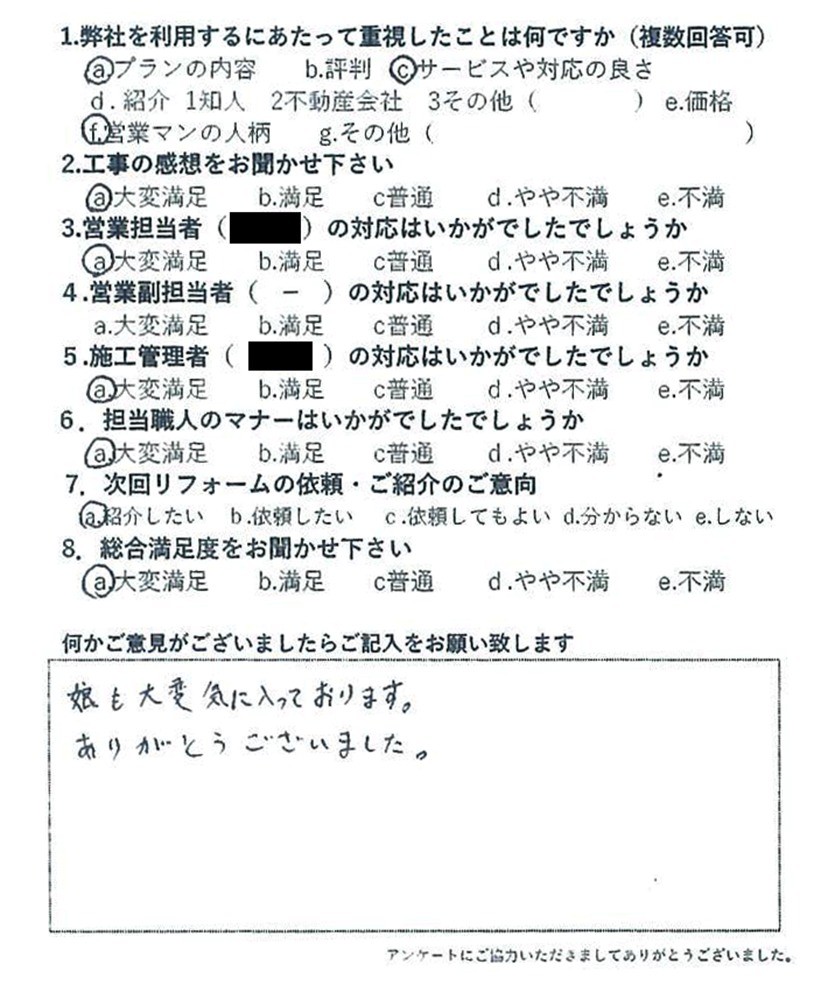 1.弊社を利用するにあたって重視したことは何ですか（複数回答可）
a プランの内容　b.評判　c サービスや対応の良さ
d．紹介　1知人　2不動産会社　3その他（　　　　）　e.価格
f.営業マンの人柄　g.その他（　　　　　　　　　　　　）
2.工事の感想をお聞かせ下さい
a 大変満足　b.満足　c普通　d.やや不満　e.不満
3.営業担当者（　　　）の対応はいかがでしたでしょうか
a 大変満足　b.満足　c普通　d.やや不満　e.不満
4.営業副担当者（　－　）の対応はいかがでしたでしょうか
a.大変満足　b.満足　c普通　d.やや不満　e.不満
5.施工管理者（　　　）の対応はいかがでしたでしょうか
a.大変満足　b.満足　c普通　d.やや不満　e.不満
6．担当職人のマナーはいかがでしたでしょうか
a.大変満足　b.満足　c普通　d.やや不満　e.不満
7．次回リフォームの依頼・ご紹介のご意向
a.紹介したい　b.依頼したい　c.依頼してもよい　d.分からない　e.しない
8．総合満足度をお聞かせ下さい
a.大変満足　b.満足　c普通　d.やや不満　e.不満
何かご意見がございましたらご記入をお願い致します
娘も大変気に入っております。
ありがとうございました。
アンケートにご協力いただきましてありがとうございました。